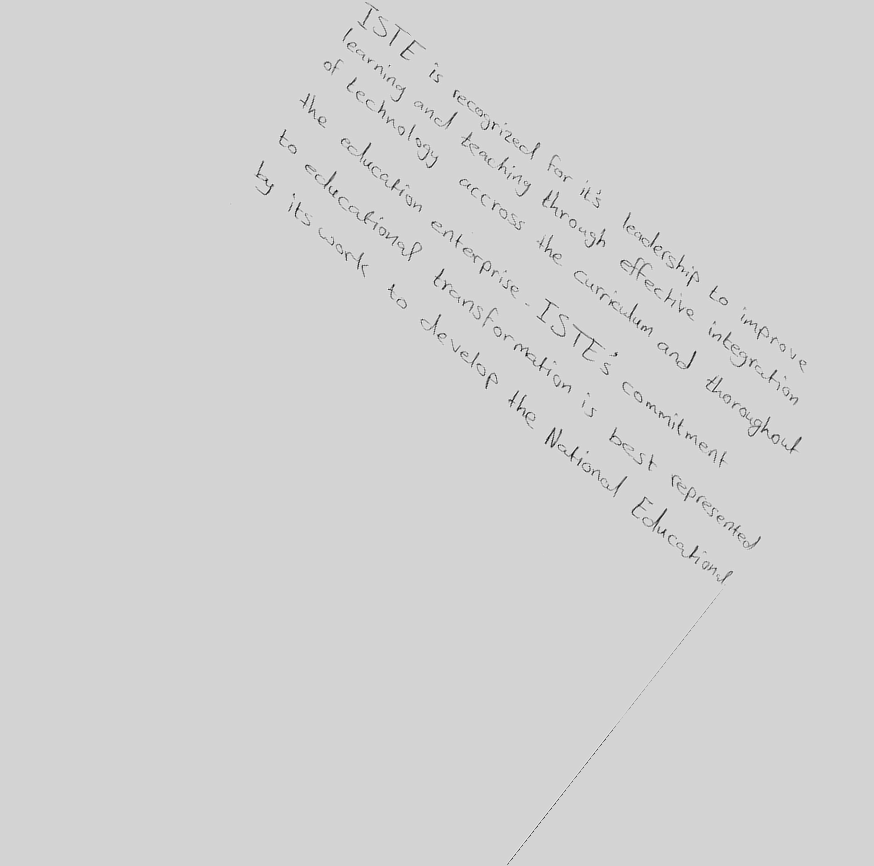 ISTE is recognized for it's leadership to improve
learning and teaching through effective integration
of technology accross the curriculum and thoroughout
the education enterprise. ISTE's commitment
to educational transformation is best represented
by its work to develop the National Educational